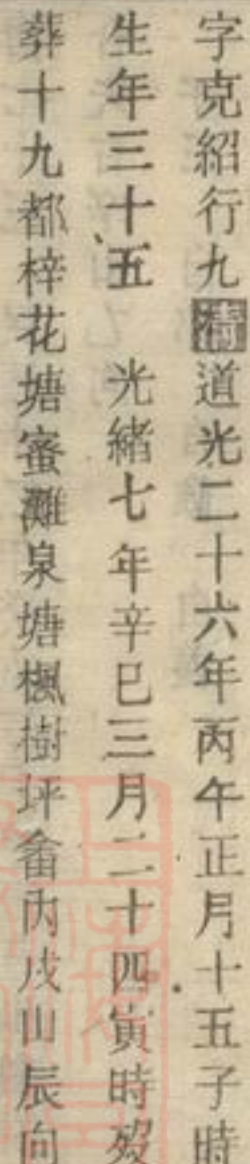 字克紹行九清道光二十六年丙午正月十五子時
生年三十五 光緒七年辛巳三月二十四寅時歿
葬十九都梓花塘蜜灘泉塘楓樹坪畬內戌山辰向